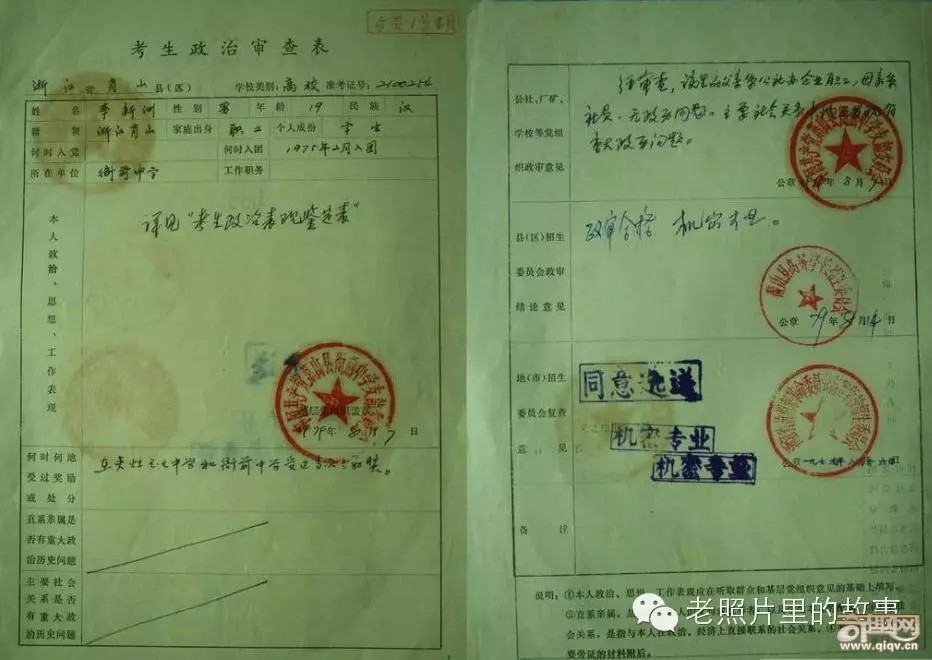 考生政治审查表
浙江省肖山县(区) 学校类别：高校 准考证号：2100254
姓名 李新洲 性别 男 年龄 19 民族 汉
籍贯 浙江肖山 家庭出身 职工 个人成份 学生
何时入党 何时入团 1975年2月入团
所在单位 衙前中学 工作职务
本人政治、思想、工作表现
详见“考生政治表现鉴定表”
1979年8月7日
何时何地
受过奖励
或处分
直系亲属是
否有重大政
治历史问题
主要社会
关系是否
有重大政
治历史问题
公社、厂矿、
学校等党组
织政审意见
经审查，该生的父亲系公社办企业职工，母亲系
社员，无政历问题。主要社会关系
重大政历问题。
公章 年8月 日
县(区)招生
委员会政审
结论意见
政审合格 机密专业。
萧山县高等学校招生委员会
公章 79年8月14日
地(市)招生
委员会复查
意见
同意选送
机密专业
机密专业
公章
备注
说明：①本人政治、思想、工作表现应在听取群众和基层党组织意见的基础上填写。
②直系亲属，是
会关系，是指与本人在政治、经济上直接联系的社会关系。
要旁证的材料附后。
老照片里的故事
www.qiqv.cn